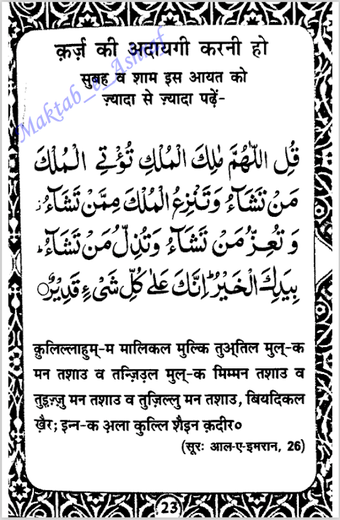 क़र्ज़ की अदायगी करनी हो
सुबह व शाम इस आयत को
ज़्यादा से ज़्यादा पढ़ें-
Maktab_e_Ashraf
قُلِ اللّٰهُمَّ مٰلِكَ الْمُلْكِ تُؤْتِي الْمُلْكَ
مَنْ تَشَآءُ وَتَنْزِعُ الْمُلْكَ مِمَّنْ تَشَآءُ ز
وَ تُعِزُّ مَنْ تَشَآءُ وَتُذِلُّ مَنْ تَشَآءُ ط
بِيَدِكَ الْخَيْرُ ط اِنَّكَ عَلٰى كُلِّ شَیْءٍ قَدِيْرٌ○
क़ुलिल्लाहुम्-म मालिकल मुल्कि तुअ्तिल मुल्-क
मन तशाउ व तन्ज़िउल मुल्-क मिम्मन तशाउ व
तुइज़्ज़ु मन तशाउ व तुज़िल्लु मन तशाउ, बियदिकल
ख़ैर; इन्न-क अला कुल्लि शैइन क़दीर०
(सूरः आल-ए-इमरान, 26)
23